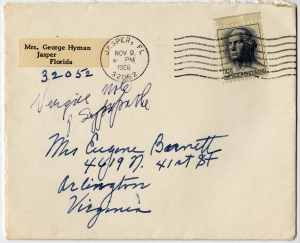 Mrs. George Hyman
Jasper
Florida
32052
JASPER, FL
NOV 9
PM
1966
32052
5¢ U.S. POSTAGE
note
of sympathy
Mrs Eugene Barnett
4419 N. 41st St
Arlington
Virginia